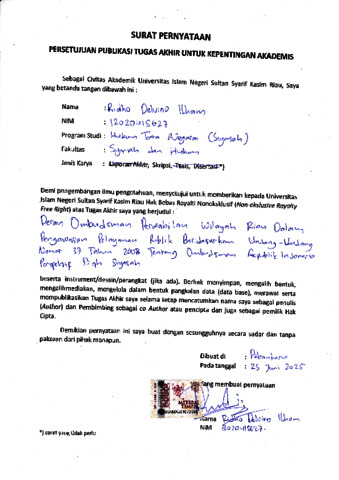 SURAT PERNYATAAN
PERSETUJUAN PUBLIKASI TUGAS AKHIR UNTUK KEPENTINGAN AKADEMIS
Sebagai Civitas Akademik Universitas Islam Negeri Sultan Syarif Kasim Riau, Saya
yang betanda tangan dibawah ini :
Nama : Ridho Delvino Ilham
NIM : 12020415827
Program Studi : Hukum Tata Negara (Siyasah)
Fakultas : Syariah dan Hukum
Jenis Karya : Laporan Akhir, Skripsi, Tesis, Disertasi*)
Demi pengembangan ilmu pengetahuan, menyetujui untuk memberikan kepada Universitas
Islam Negeri Sultan Syarif Kasim Riau Hak Bebas Royalti Nonekslusif (Non-ekslusive Royalty
Free Right) atas Tugas Akhir saya yang berjudul :
Peran Ombudsman Perwakilan Wilayah Riau Dalam
Pengawasan Pelayanan Publik Berdasarkan Undang-Undang
Nomor 37 Tahun 2008 Tentang Ombudsman Republik Indonesia
Fiqh Siyasah
beserta instrument/desain/perangkat (jika ada). Berhak menyimpan, mengalih bentuk,
mengalihmediakan, mengelola dalam bentuk pangkalan data (data base), merawat serta
mempublikasikan Tugas Akhir saya selama tetap mencatumkan nama saya sebagai penulis
(Author) dan Pembimbing sebagai co Author atau pencipta dan juga sebagai pemilik Hak
Cipta.
Demikian pernyataan ini saya buat dengan sesungguhnya secara sadar dan tanpa
paksaan dari pihak manapun.
Dibuat di : Pekanbaru
Pada tanggal : 25 Juni 2025
Yang membuat pernyataan
Nama Ridho Delvino Ilham
NIM 12020415827
*) coret yang tidak perlu